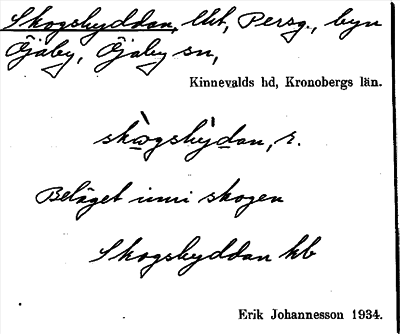 Skogshyddan, lht, Persg., byn
Öjaby, Öjaby sn,
Kinnevalds hd, Kronobergs län.
skωgshỳdan, r.
Beläget inni skogen
Skogshyddan kb
Erik Johannesson 1934.